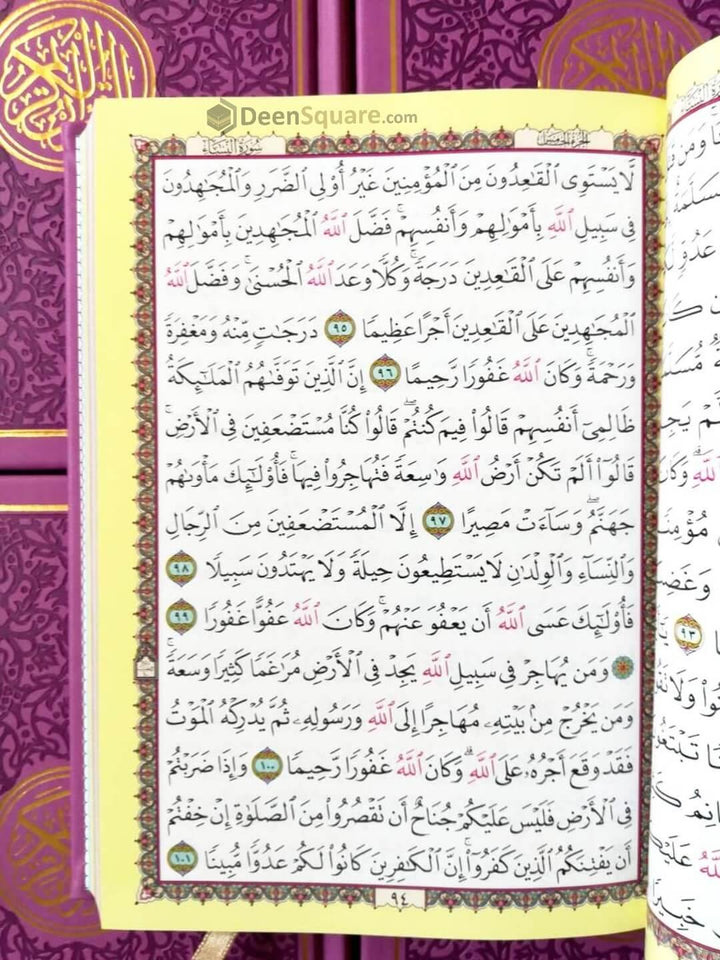 DeenSquare.com
سُورَةُ النِّسَاءِ
الجُزْءُ الخَامِسُ
لَّا يَسْتَوِي الْقَاعِدُونَ مِنَ الْمُؤْمِنِينَ غَيْرُ أُولِي الضَّرَرِ وَالْمُجَاهِدُونَ
فِي سَبِيلِ اللَّهِ بِأَمْوَالِهِمْ وَأَنفُسِهِمْ ۚ فَضَّلَ اللَّهُ الْمُجَاهِدِينَ بِأَمْوَالِهِمْ
وَأَنفُسِهِمْ عَلَى الْقَاعِدِينَ دَرَجَةً ۚ وَكُلًّا وَعَدَ اللَّهُ الْحُسْنَىٰ ۚ وَفَضَّلَ اللَّهُ
الْمُجَاهِدِينَ عَلَى الْقَاعِدِينَ أَجْرًا عَظِيمًا ٩٥ دَرَجَاتٍ مِّنْهُ وَمَغْفِرَةً
وَرَحْمَةً ۚ وَكَانَ اللَّهُ غَفُورًا رَّحِيمًا ٩٦ إِنَّ الَّذِينَ تَوَفَّاهُمُ الْمَلَائِكَةُ
ظَالِمِي أَنفُسِهِمْ قَالُوا فِيمَ كُنتُمْ ۖ قَالُوا كُنَّا مُسْتَضْعَفِينَ فِي الْأَرْضِ ۚ
قَالُوا أَلَمْ تَكُنْ أَرْضُ اللَّهِ وَاسِعَةً فَتُهَاجِرُوا فِيهَا ۚ فَأُولَٰئِكَ مَأْوَاهُمْ
جَهَنَّمُ ۖ وَسَاءَتْ مَصِيرًا ٩٧ إِلَّا الْمُسْتَضْعَفِينَ مِنَ الرِّجَالِ
وَالنِّسَاءِ وَالْوِلْدَانِ لَا يَسْتَطِيعُونَ حِيلَةً وَلَا يَهْتَدُونَ سَبِيلًا ٩٨
فَأُولَٰئِكَ عَسَى اللَّهُ أَن يَعْفُوَ عَنْهُمْ ۚ وَكَانَ اللَّهُ عَفُوًّا غَفُورًا ٩٩
۞ وَمَن يُهَاجِرْ فِي سَبِيلِ اللَّهِ يَجِدْ فِي الْأَرْضِ مُرَاغَمًا كَثِيرًا وَسَعَةً ۚ
وَمَن يَخْرُجْ مِن بَيْتِهِ مُهَاجِرًا إِلَى اللَّهِ وَرَسُولِهِ ثُمَّ يُدْرِكْهُ الْمَوْتُ
فَقَدْ وَقَعَ أَجْرُهُ عَلَى اللَّهِ ۗ وَكَانَ اللَّهُ غَفُورًا رَّحِيمًا ١٠٠ وَإِذَا ضَرَبْتُمْ
فِي الْأَرْضِ فَلَيْسَ عَلَيْكُمْ جُنَاحٌ أَن تَقْصُرُوا مِنَ الصَّلَاةِ إِنْ خِفْتُمْ
أَن يَفْتِنَكُمُ الَّذِينَ كَفَرُوا ۚ إِنَّ الْكَافِرِينَ كَانُوا لَكُمْ عَدُوًّا مُّبِينًا ١٠١
٩٤